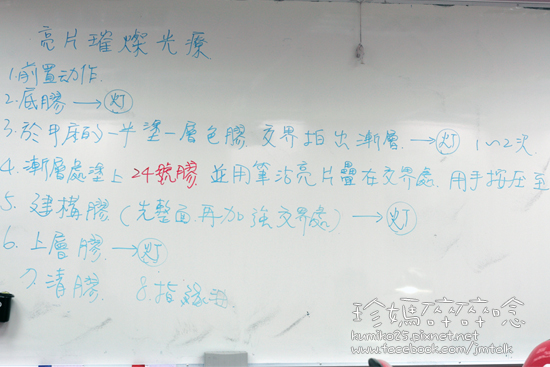 亮片璀燦光療
1.前置动作.
2.底膠 → 灯
3.於甲床的一半塗一層色膠 交界拍出漸層. → 灯 1~2次
4.漸層處塗上 24號膠 並用筆沾亮片疊在交界處. 用手按压至
5.建構膠(先整面再加強交界處) → 灯
6.上層膠. → 灯
7.清膠. 8.指緣油
珍媽碎碎唸
kumiko25.pixnet.net
www.facebook.com/jmtalk